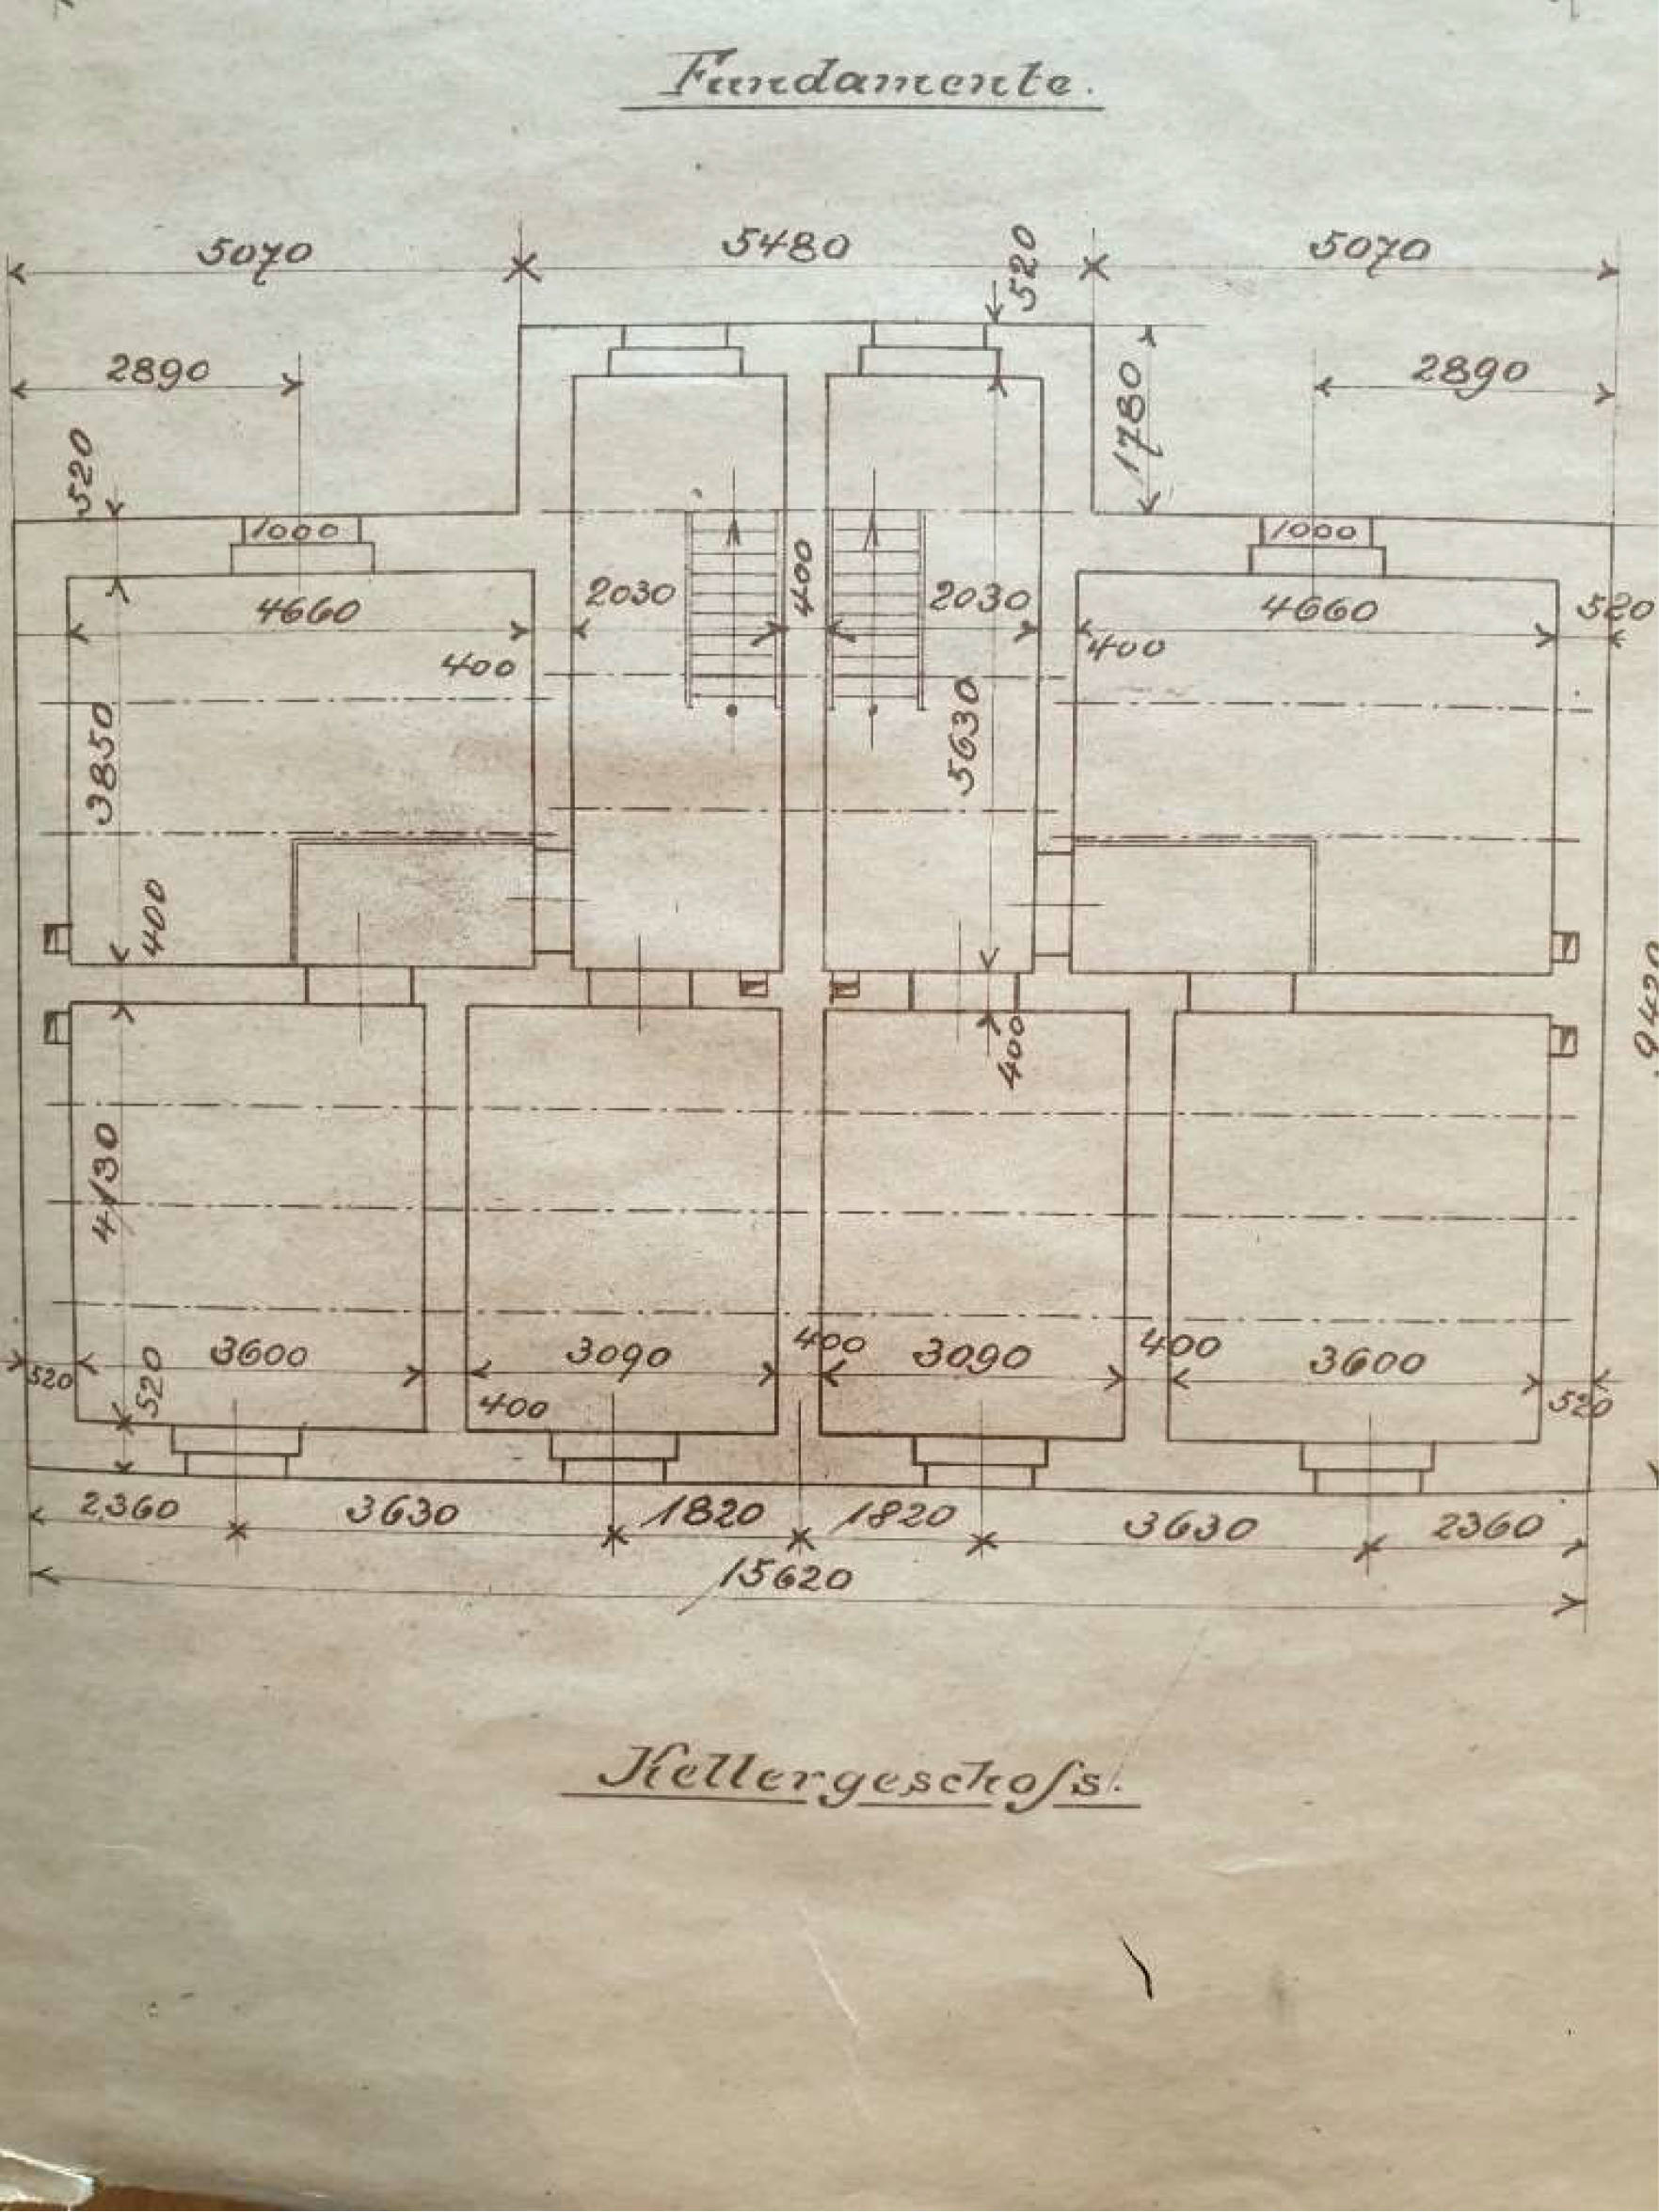 Fundamente.
5070
5480
5070
520
2890
1780
2890
520
1000
1000
4660
2030
400
2030
4660
520
400
400
3850
5630
400
9420
400
4130
3600
3090
400
3090
400
3600
520
520
400
520
2360
3630
1820
1820
3630
2360
15620
Kellergeschoſs.